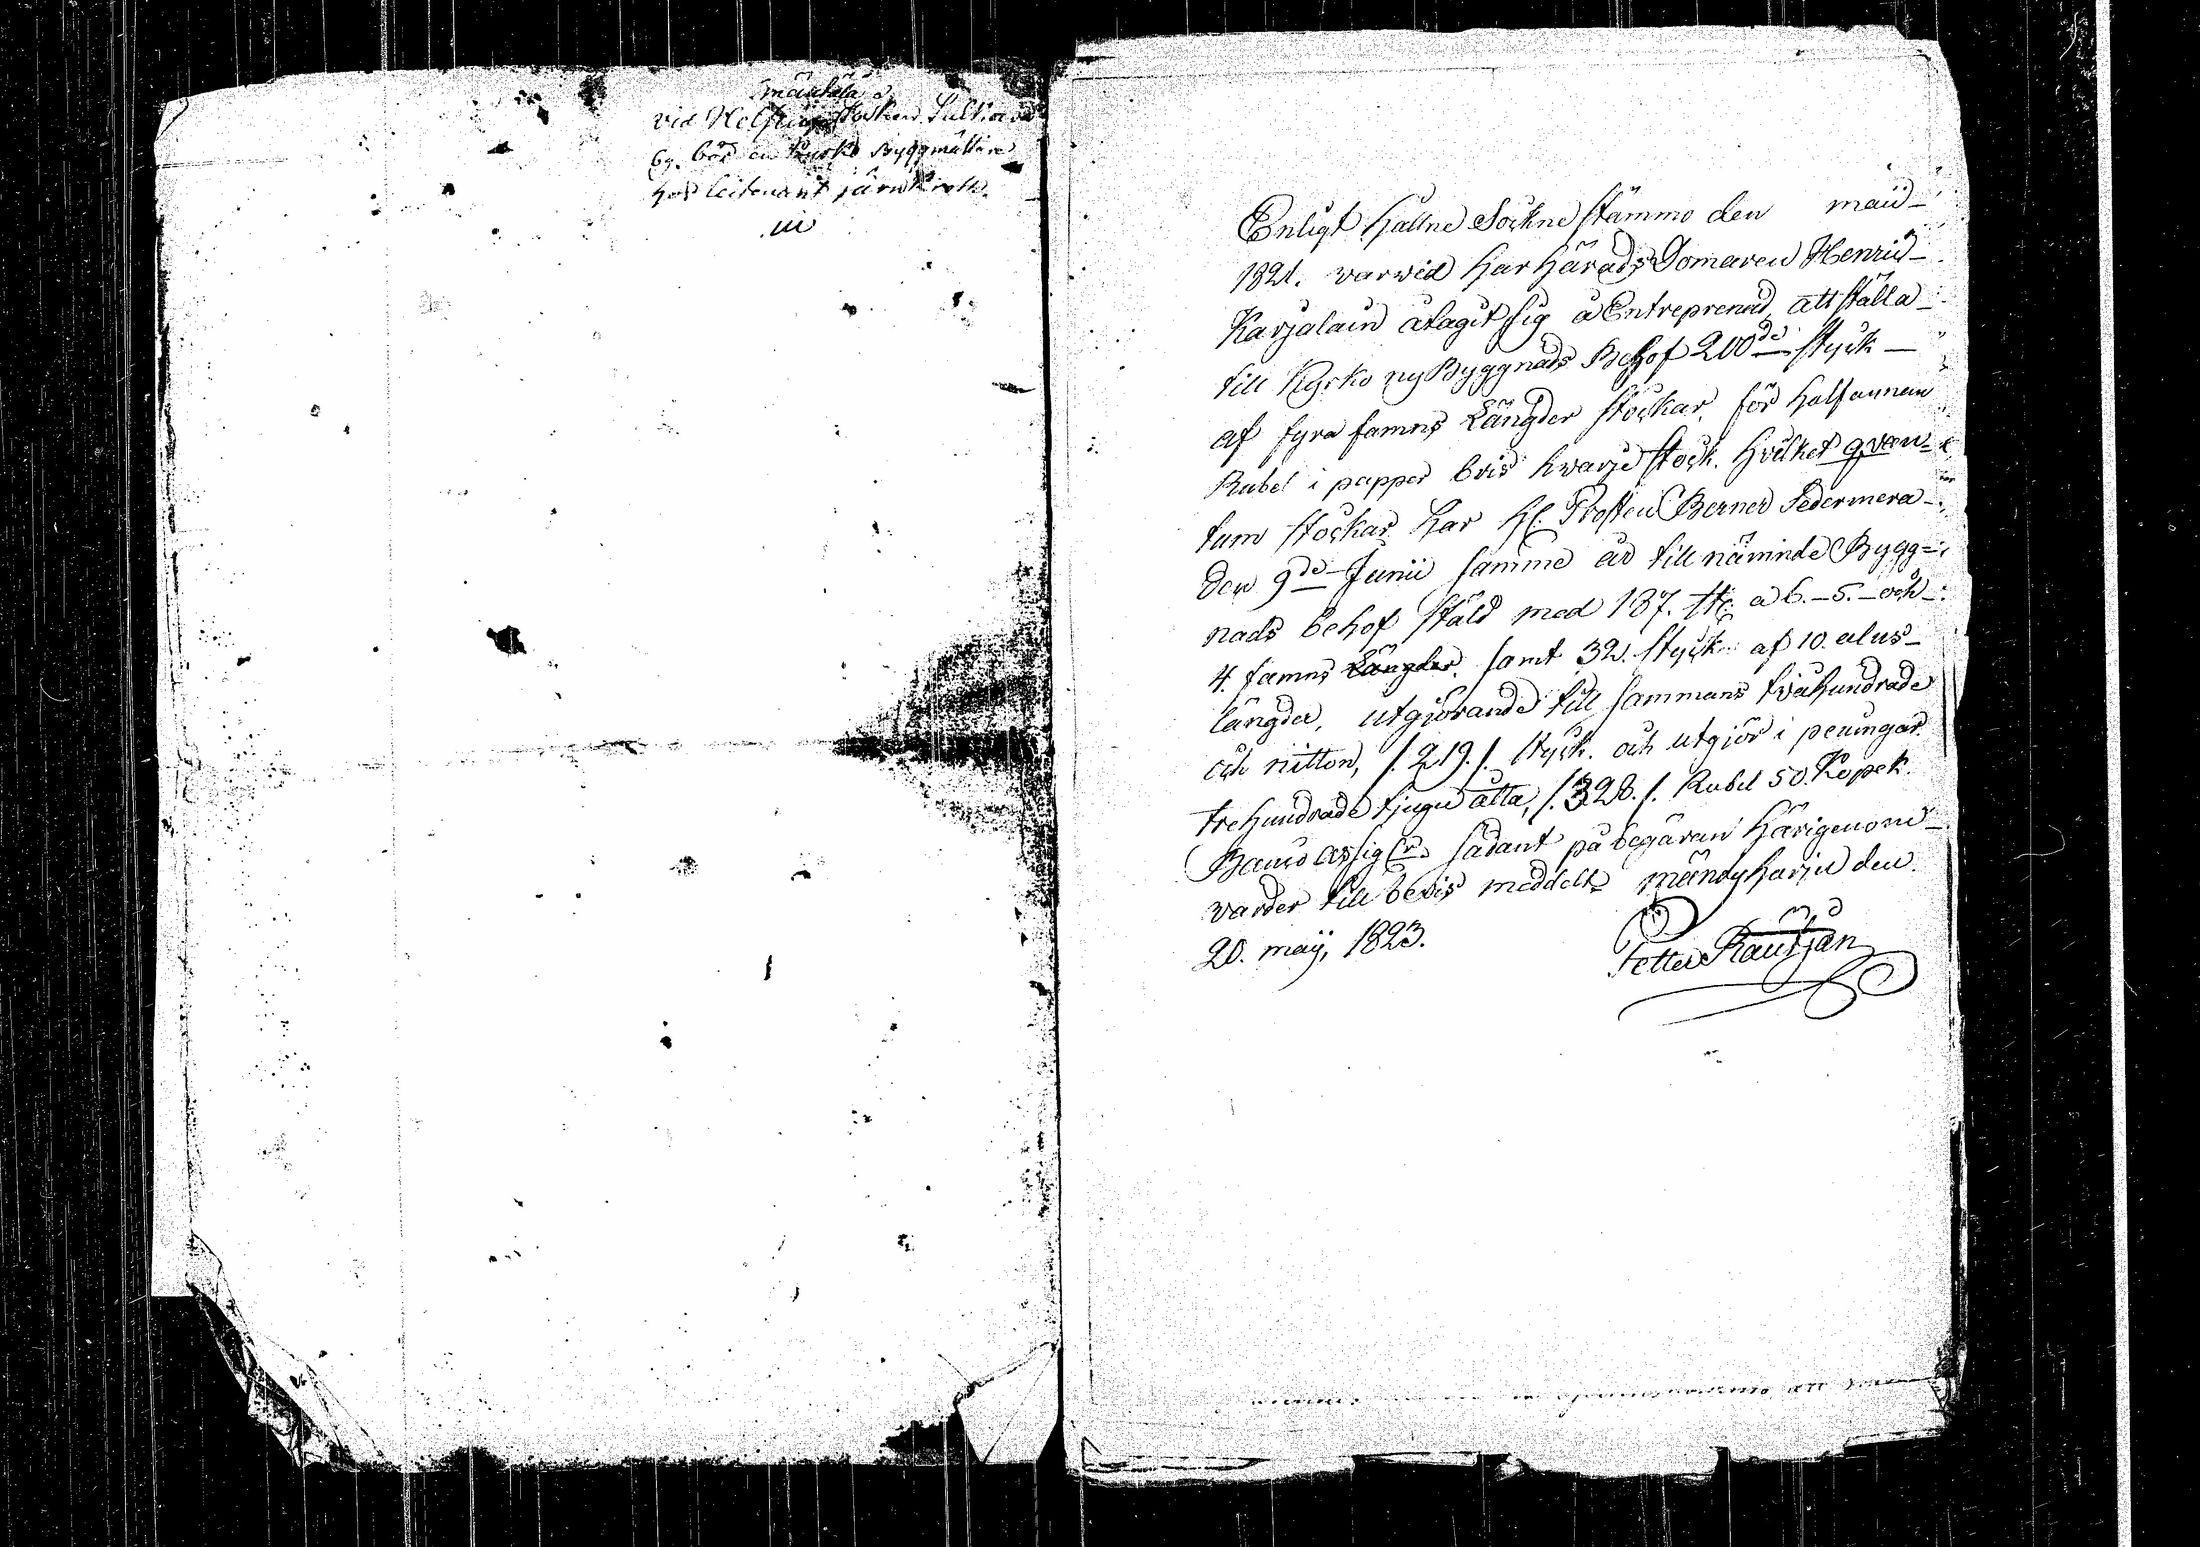 mäntälä
vid Helsinge Sokn Sultois
by. bor en Kyrko Byggmästare
hos leitenant järnkroth.
Enligt hållne Sockne stämmo den maii
1821. varwid har härads Domaren Henric
Karjalain åtagit sig å Entreprenad att ställa
till Kyrko ny Byggnads Behof 200de styck
af fyra famns Längder stockar, för half annan
Rubel i papper bris hwarje stock. hvilket qvan=
tum stockar har H. Prosten Berner Sedermera
den 9de Junii samme år till nämnde Bygg=
nads behof stäld med 187. st. a 6. - 5. - och
4. famns Längder. samt 32. styck af 10. alns
längder, utgjörande till sammans tvåhundrade
och nitton, /. 219. /. styck. och utgjör i peningar
trehundrade tjugu åtta, /. 328. /. Rubel 50. Kopek.
Banco assig sådant på begäran härigenom
varder till bevis meddelt mändyharju den
20. maÿ, 1823.
Petter Rautjän